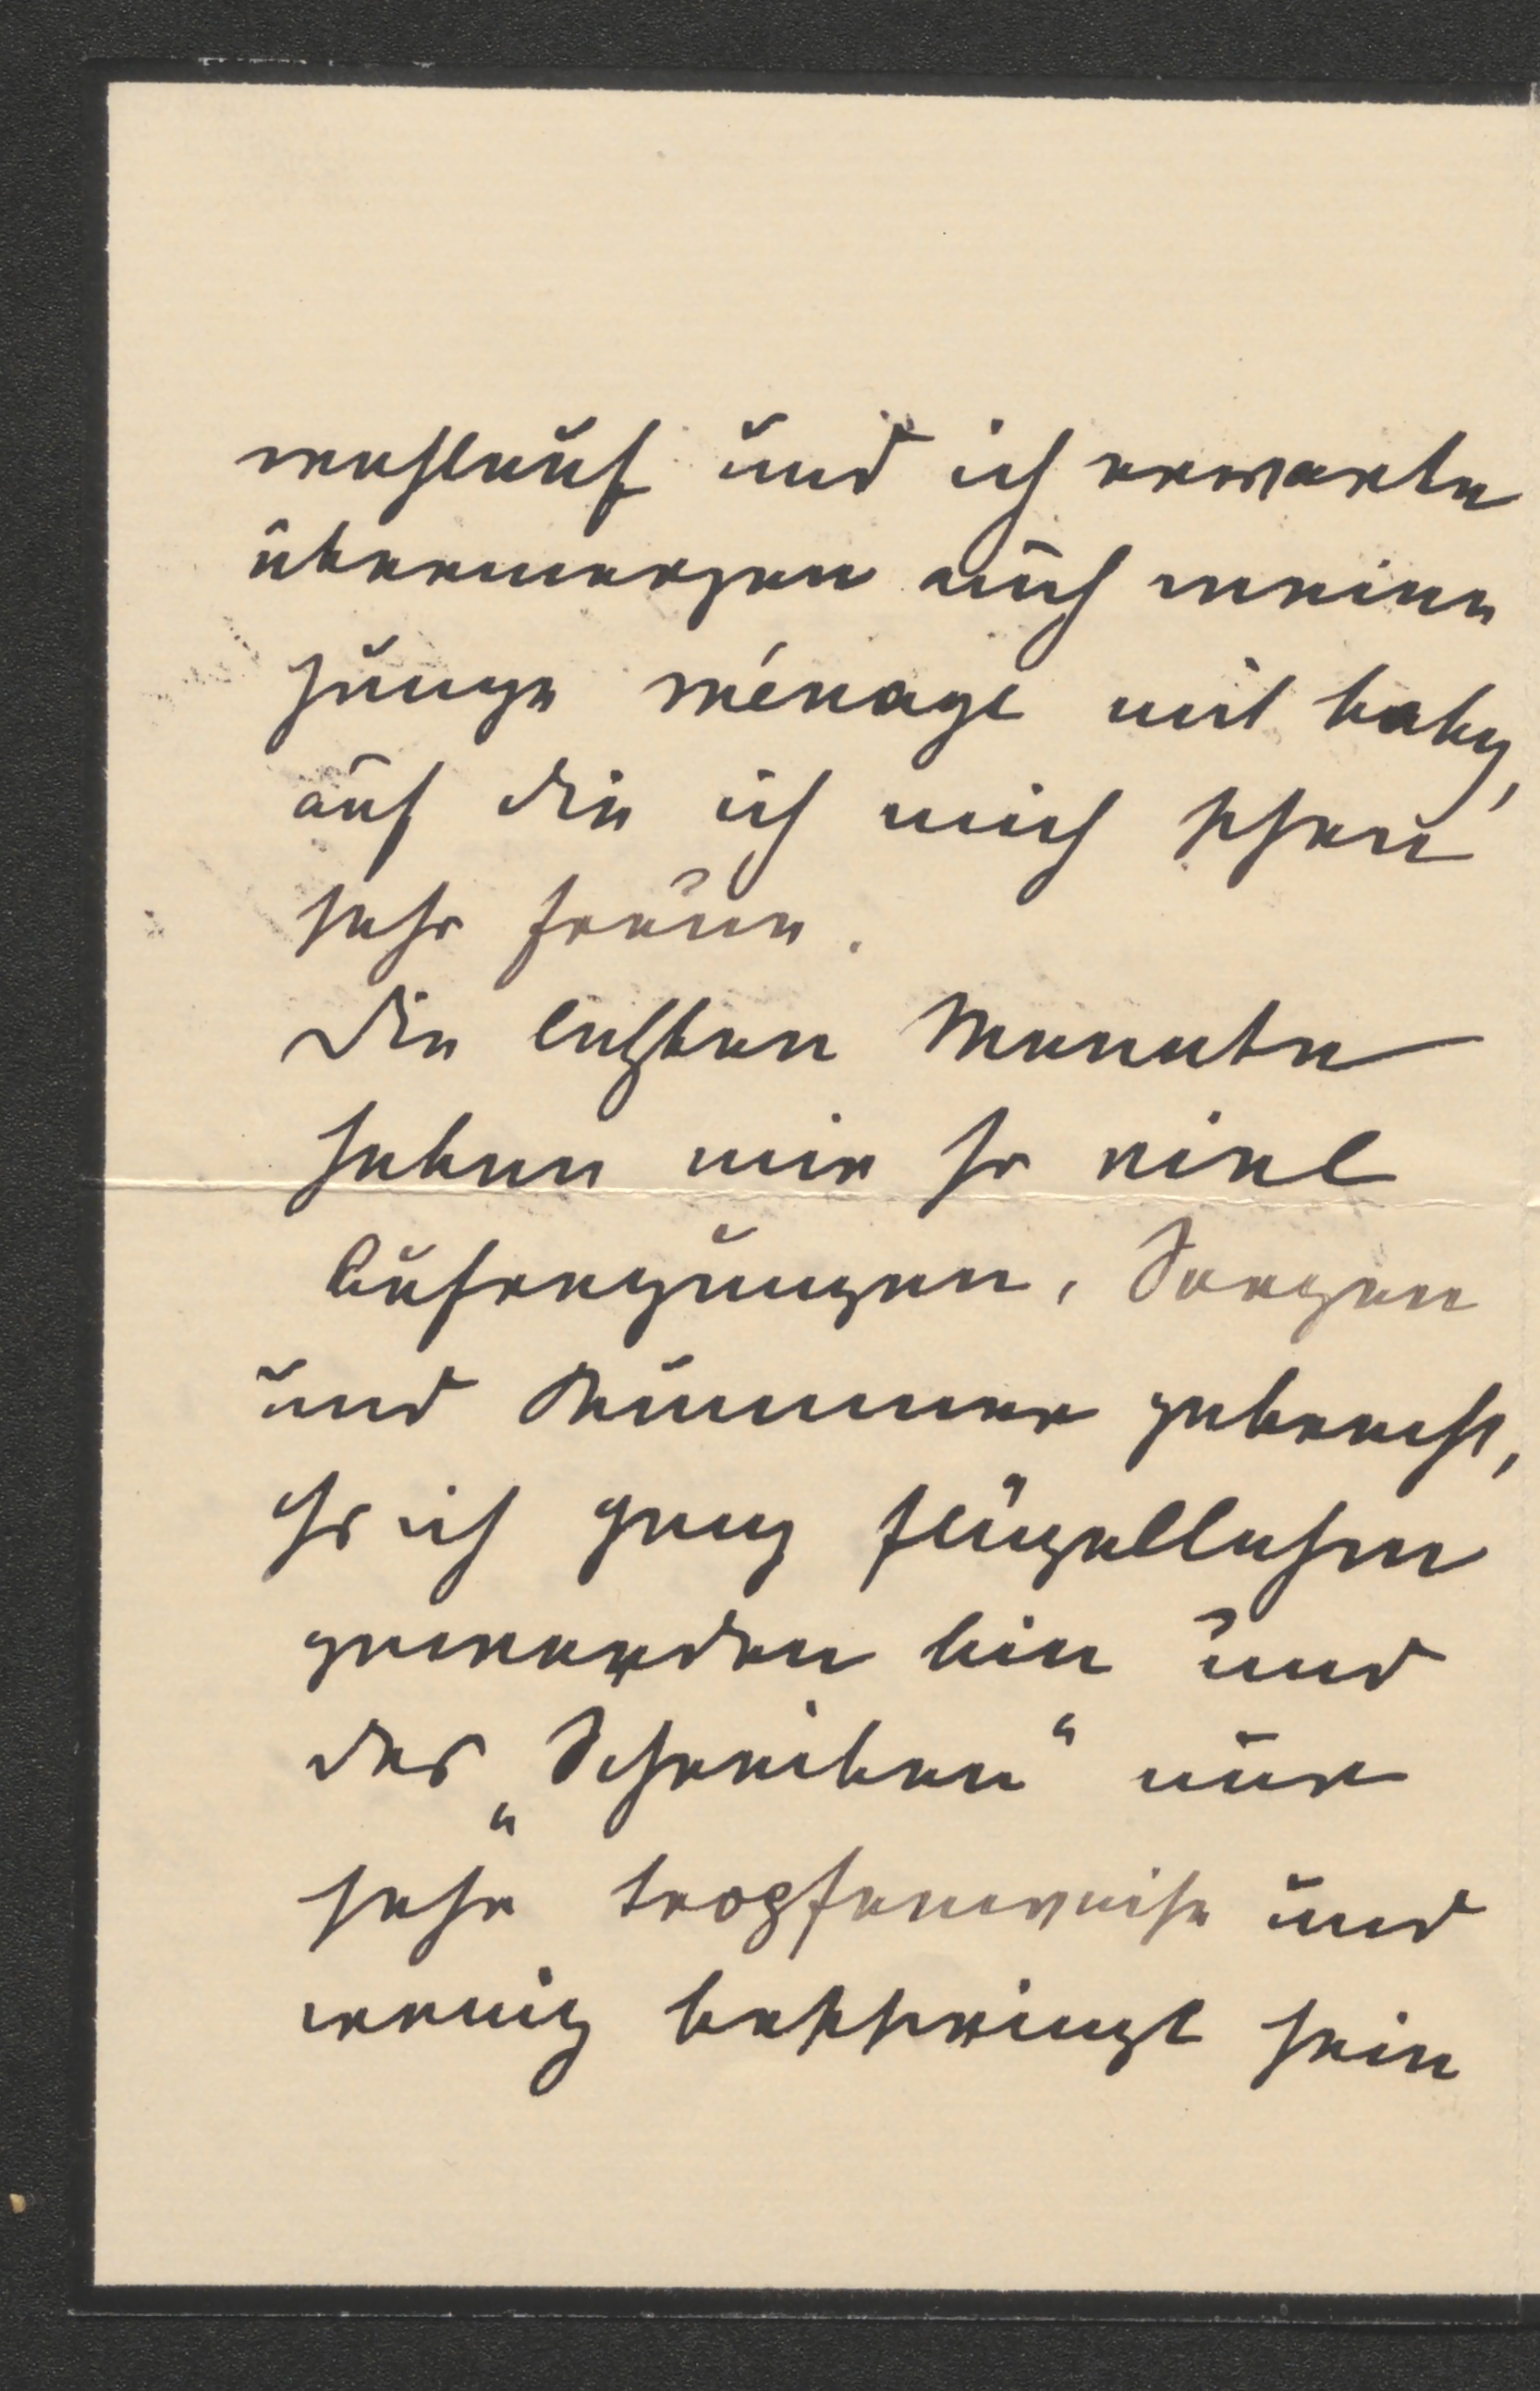 wohlauf und ich erwarte
übermorgen auch meine
junge ménage mit baby,
auf die ich mich schon
sehr freue.
Die letzten Monate
haben mir so viel
Aufregungen, Sorgen
und Kummer gebracht,
daß ich ganz flügellahm
geworden bin und
das „Schreiben“ nur
sehr tropfenweise und
wenig beschwingt sein